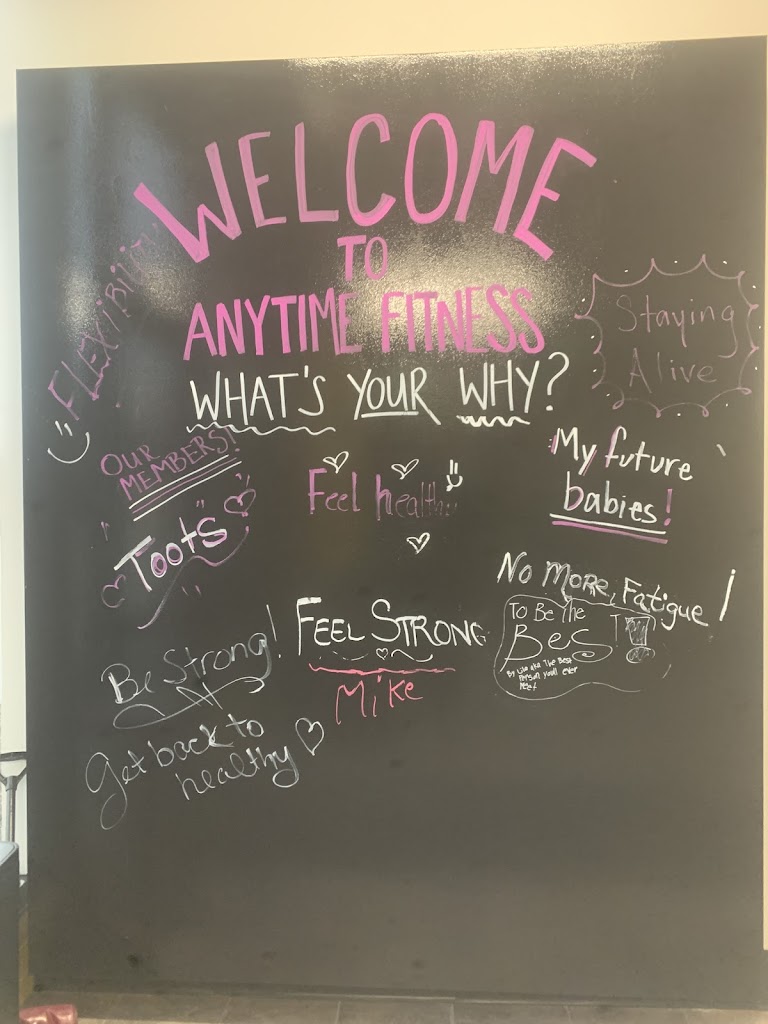 WELCOME
TO
ANYTIME FITNESS
WHAT'S YOUR WHY?
FLEXIBILITY
Staying
Alive
OUR
MEMBERS!
Feel healthy
My future
babies!
"Toots"
No More Fatigue!
To Be The
Best
By Lito aka The Best
Person you'll ever
meet
FEEL STRONG
Mike
Be Strong!
Get back to
healthy